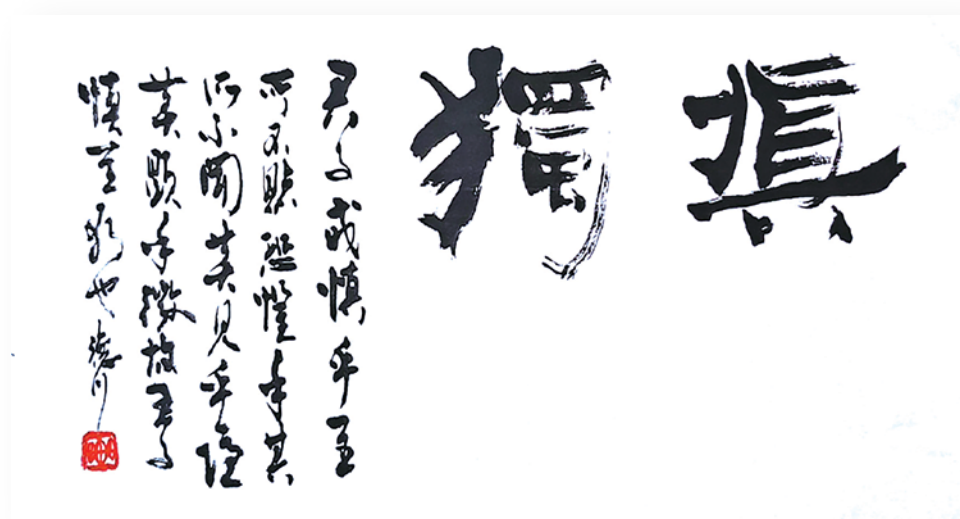 慎獨
君子戒慎乎其
所不睹恐懼乎其
所不聞莫見乎隱
莫顯乎微故君子
慎其獨也 德川